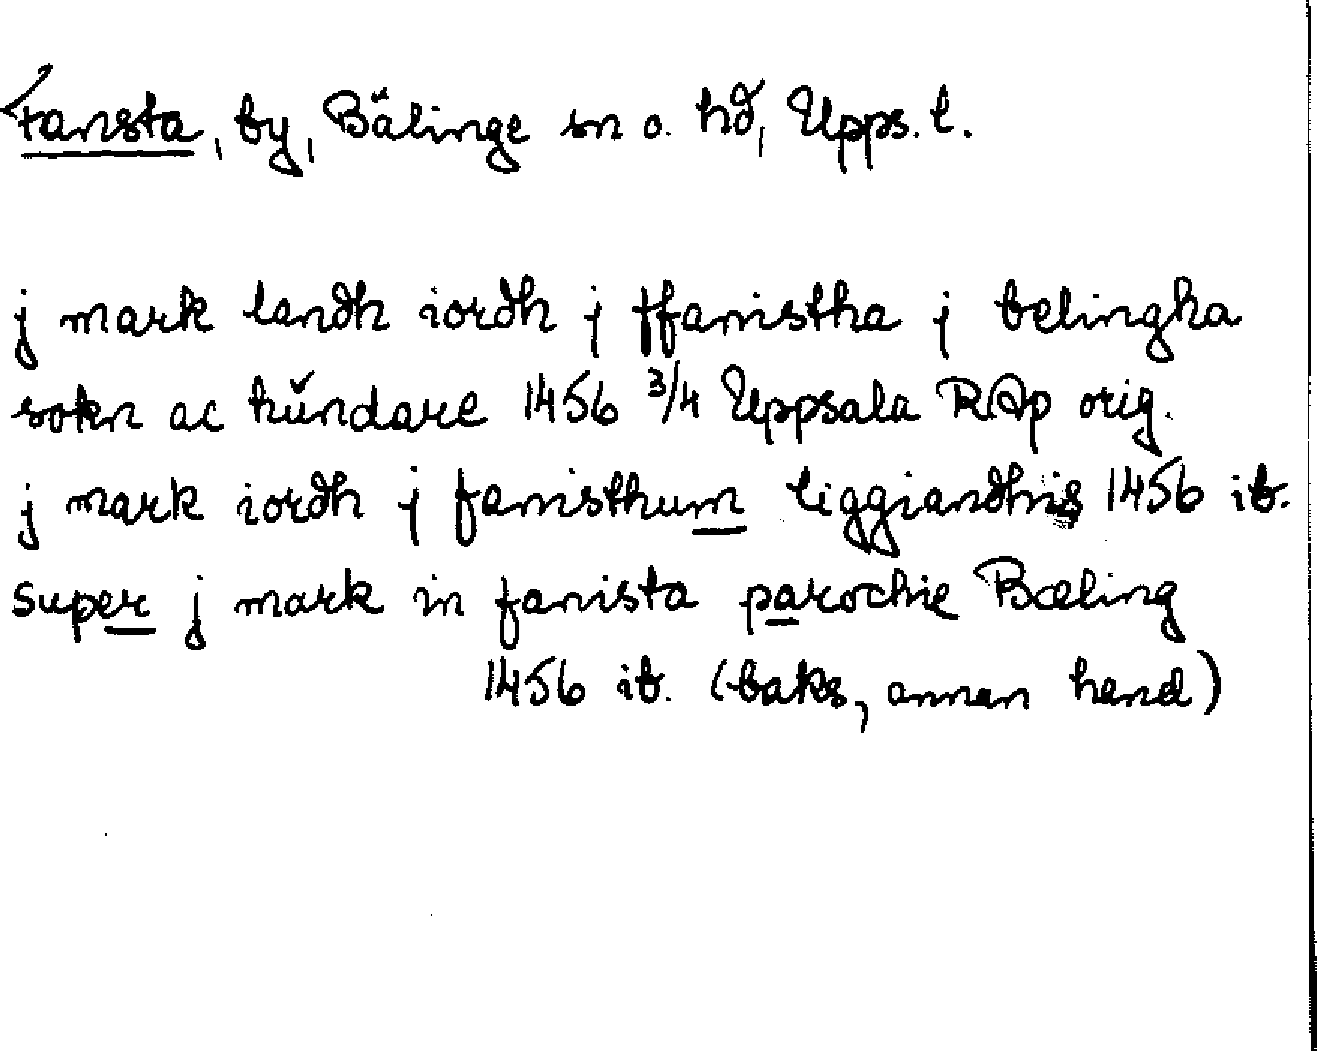 Fansta, by, Bälinge sn o. hd, Upps. l.
j mark landh iordh j ffanistha j belingha
sokn ac hundare 1456 3/4 Uppsala RAp orig.
j mark iordh j fanisthum liggiandhis 1456 ib.
super j mark in fanista parochie Bæling
1456 ib. (baks, annan hand)